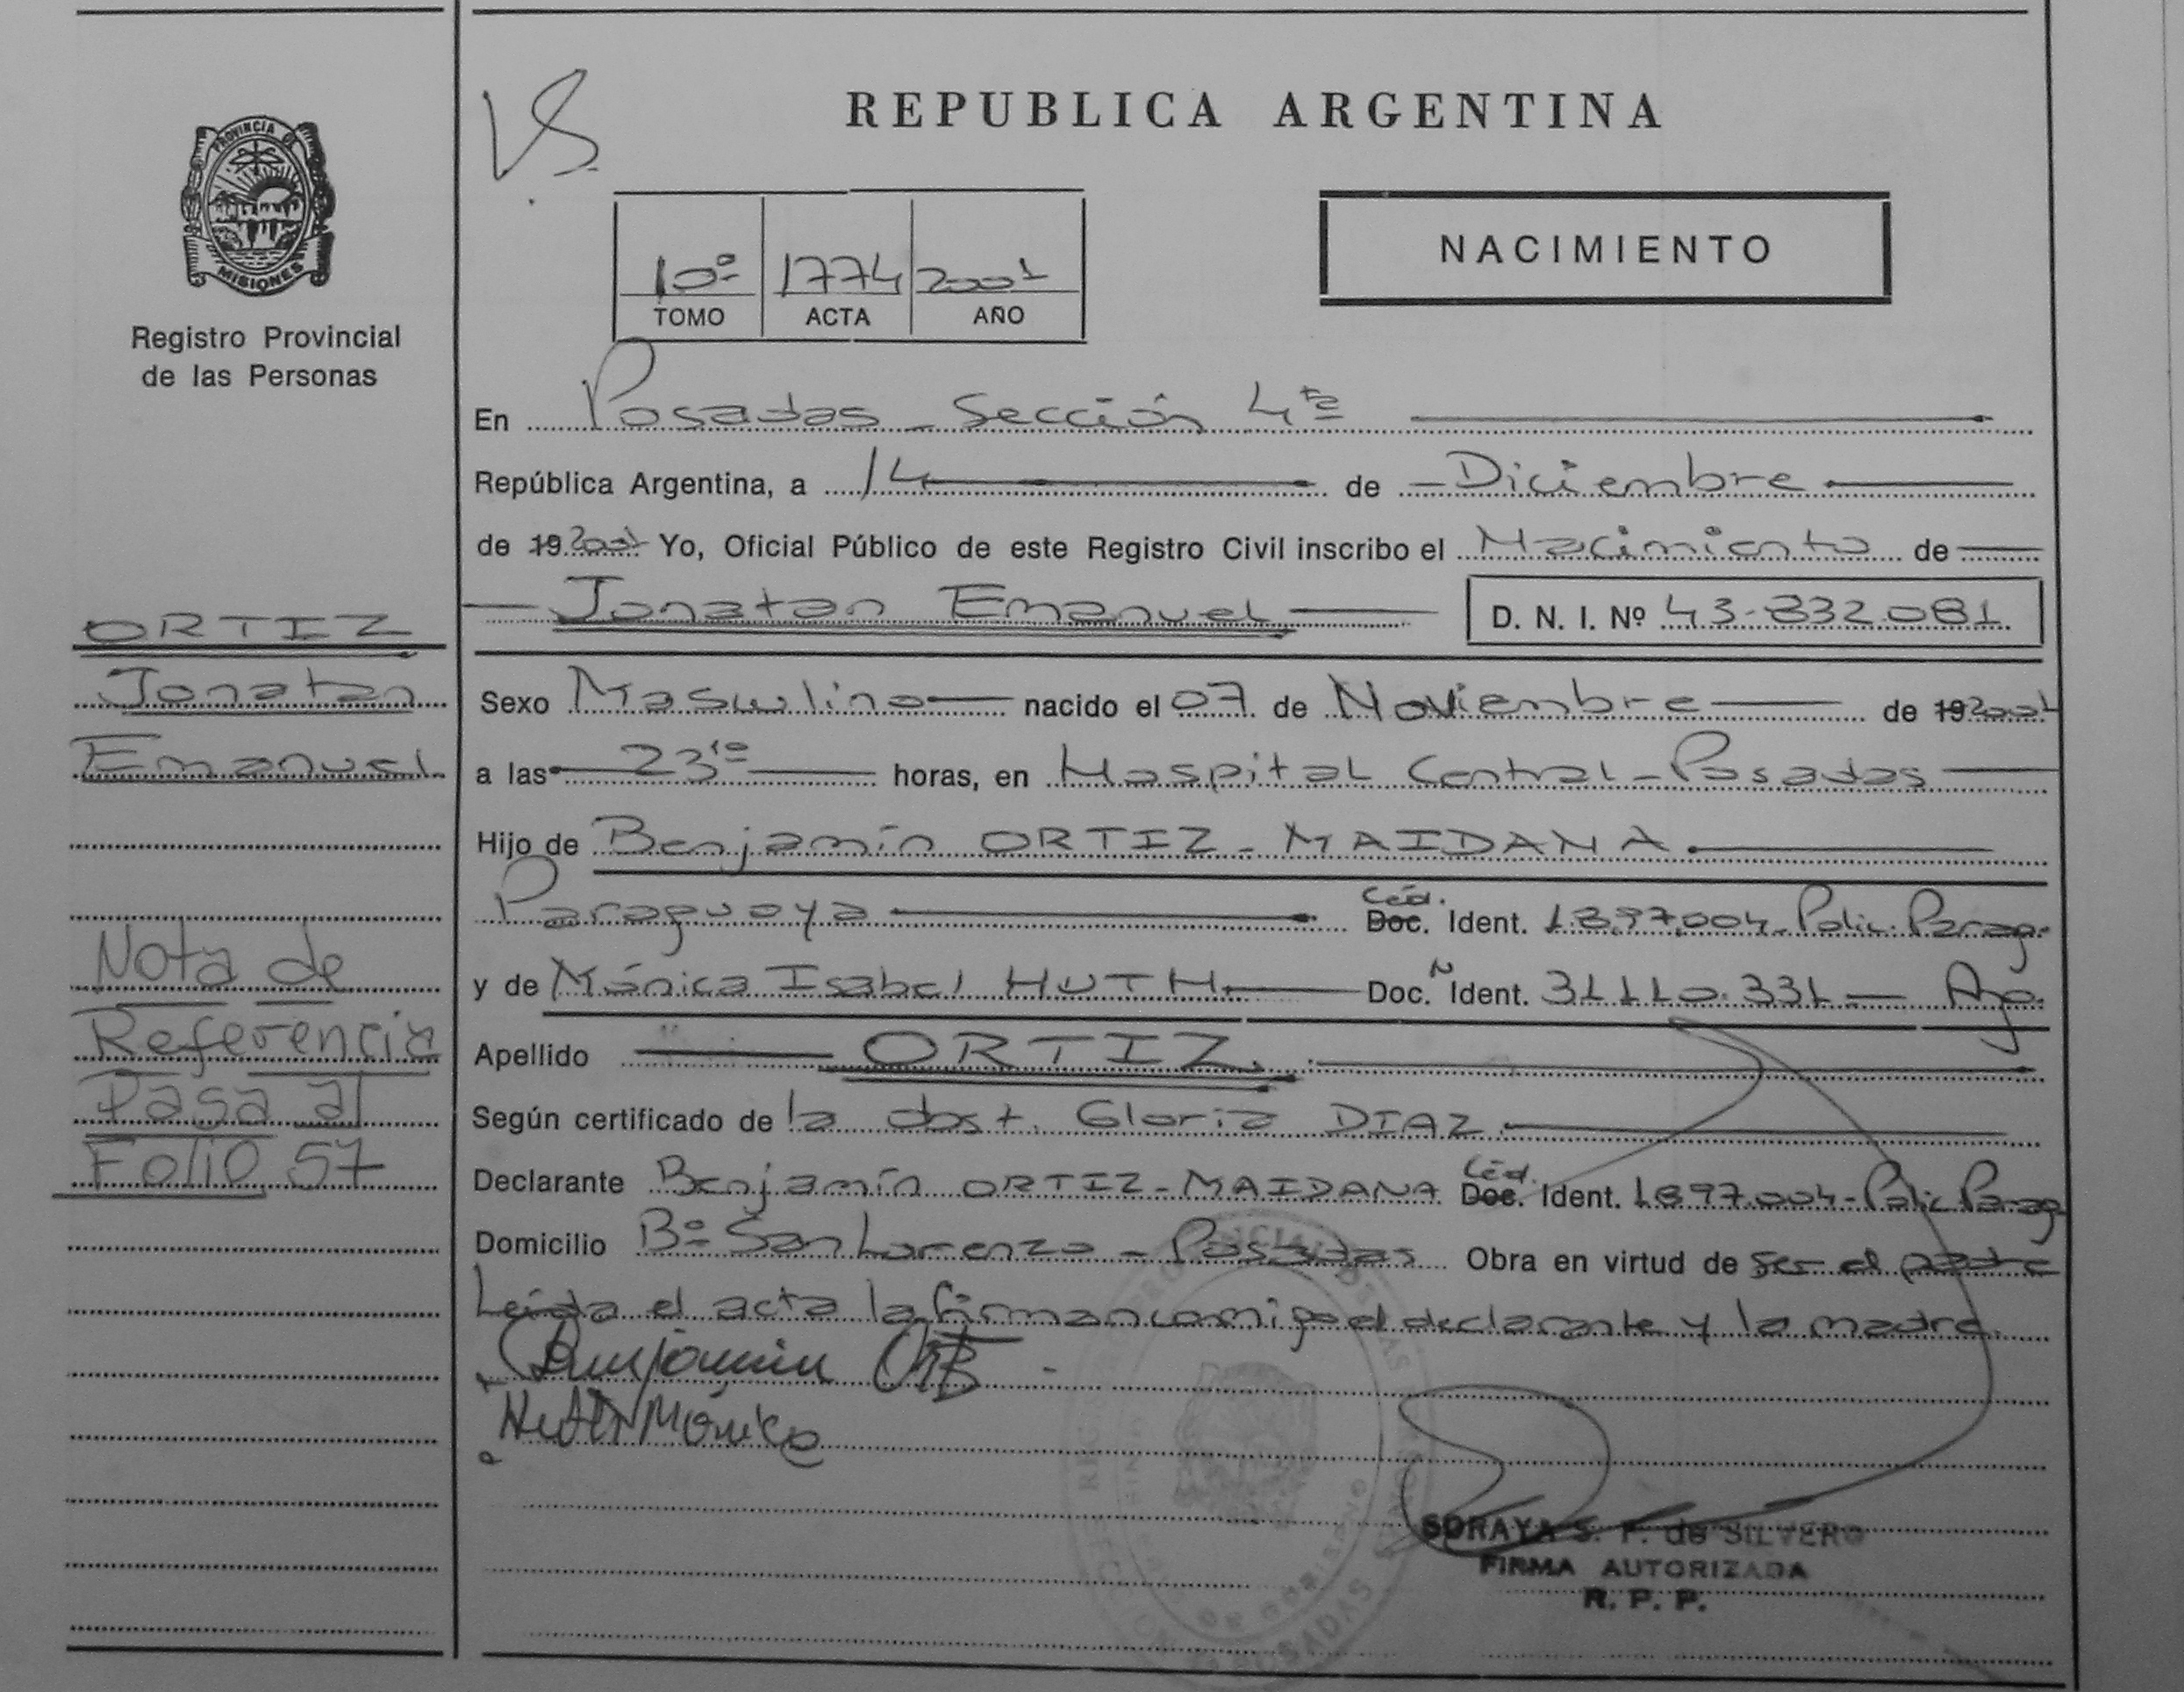 REPUBLICA ARGENTINA
PROVINCIA DE
MISIONES
Registro Provincial
de las Personas
NACIMIENTO
10º 1774 2001
TOMO ACTA AÑO
En Posadas - Sección 4ta
República Argentina, a 14 de Diciembre
de 19 2001 Yo, Oficial Público de este Registro Civil inscribo el Nacimiento de
Jonatan Emanuel D. N. I. Nº 43-832.081.
ORTIZ
Jonatan
Emanuel
Sexo Masculino nacido el 07 de Noviembre de 19 2001
a las 23 10 horas, en Hospital Central - Posadas
Hijo de Benjamín ORTIZ - MAIDANA.
Paraguaya Céd. Doc. Ident. 1.897.004 - Polic. Parag.
y de Mónica Isabel HUTH Doc. N Ident. 31.110.331 - Ag.
Apellido ORTIZ.
Según certificado de la obst. Gloria DIAZ.
Declarante Benjamín ORTIZ - MAIDANA Céd. Doc. Ident. 1.897.004 - Polic. Parag
Domicilio Bº San Lorenzo - Posadas Obra en virtud de ser el padre
Leída el acta la firman conmigo el declarante y la madre.
Nota de
Referencia
Pasa al
Folio 57
Benjamin
Huth Mónica
SORAYA S. F. de SILVERO
FIRMA AUTORIZADA
R. P. P.
POSADAS